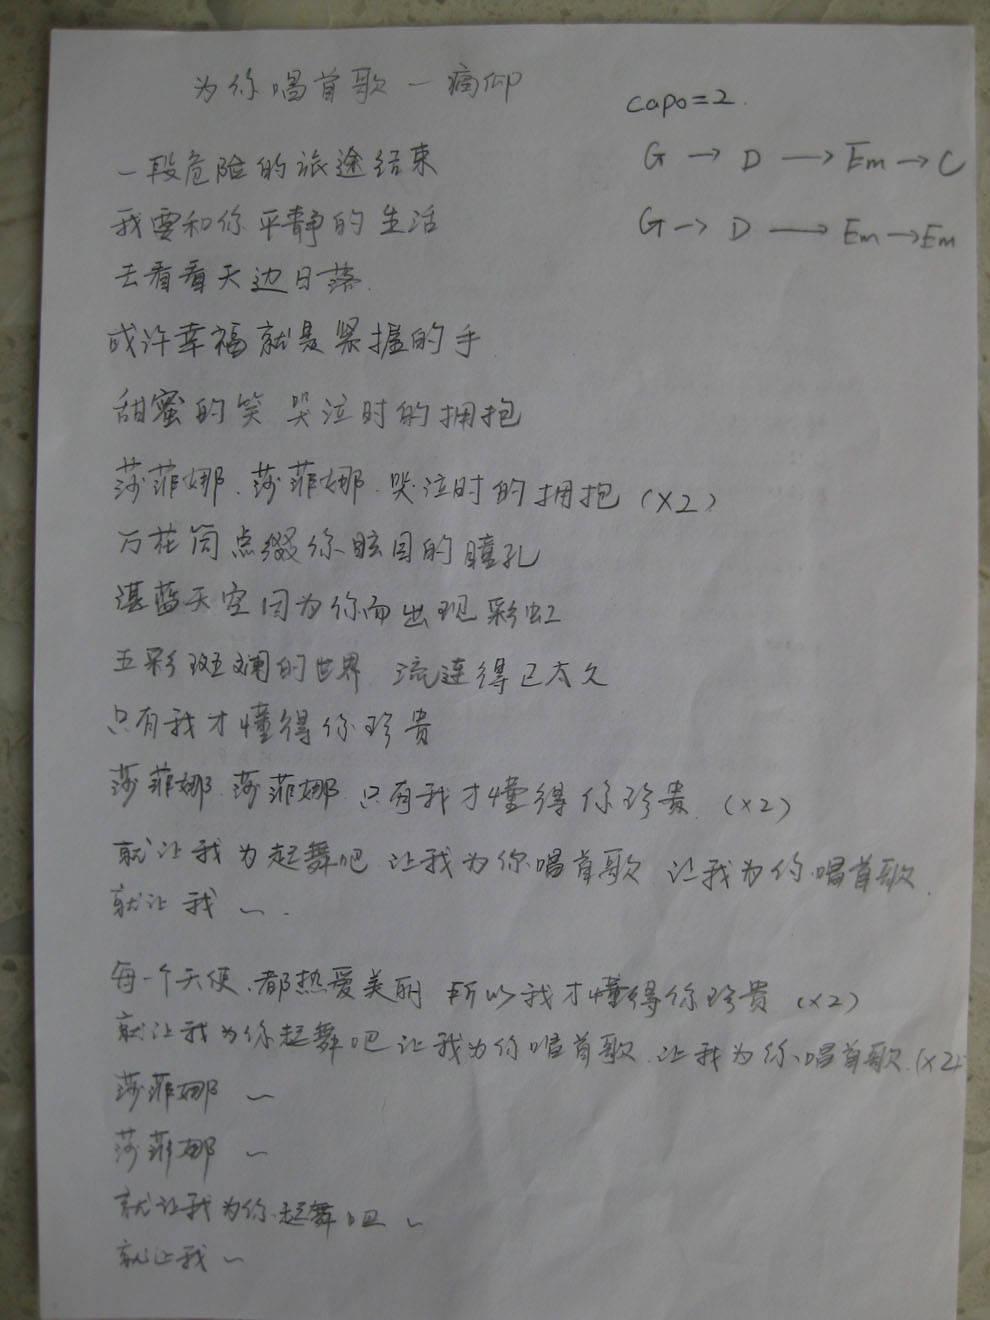 为你唱首歌 — 痛仰
capo=2.
G → D → Em → C
G → D → Em → Em
一段危险的旅途结束
我要和你平静的生活
去看看天边日落.
或许幸福就是紧握的手
甜蜜的笑 哭泣时的拥抱
莎菲娜.莎菲娜.哭泣时的拥抱 (×2)
万花筒点缀你眩目的瞳孔
湛蓝天空因为你而出现彩虹
五彩斑斓的世界 流连得已太久
只有我才懂得你珍贵
莎菲娜.莎菲娜.只有我才懂得你珍贵.(×2)
就让我为起舞吧 让我为你唱首歌 让我为你唱首歌.
就让我 ~.
每一个天使.都热爱美丽 所以我才懂得你珍贵 (×2)
就让我为你起舞吧 让我为你唱首歌.让我为你唱首歌.(×2)
莎菲娜 ~
莎菲娜 ~
就让我为你起舞吧 ~
就让我 ~